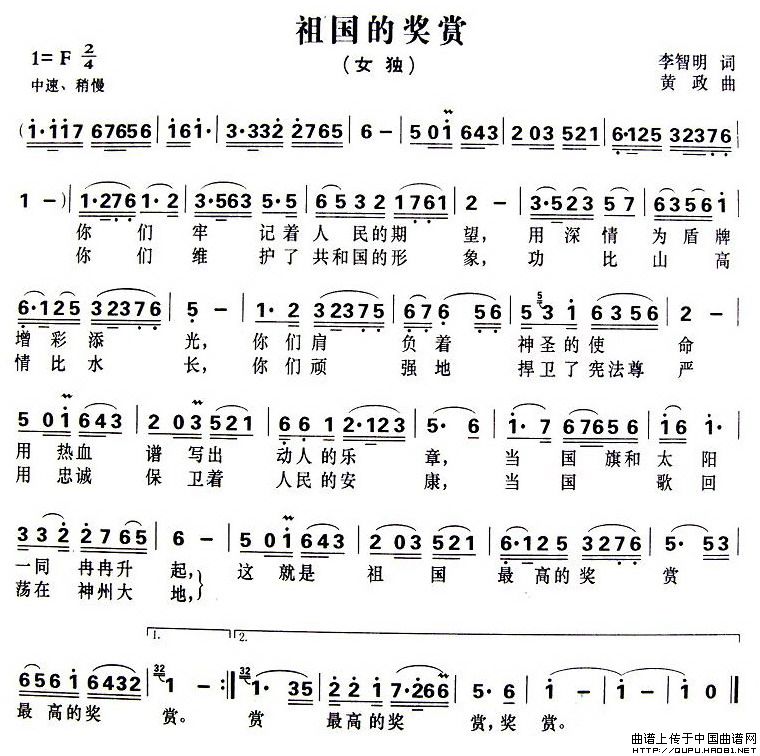 祖国的奖赏
1=F 2/4
(女 独)
李智明 词
中速、稍慢
黄 政 曲
(i·ii7 67656 | i6i· | 3·332 2765 | 6 - | 50i 643 | 203 521 | 6·125 32376 |
1 -) | 1·276 1·2 | 3·563 5·5 | 6532 1761 | 2 - | 3·523 57 | 63561 i |
你 们 牢 记着 人 民的期 望, 用 深 情 为 盾 牌
你 们 维 护了 共和国的形 象, 功 比 山 高
6·125 32376 | 5 - | 1·2 32375 | 676 56 | 53i 6356 | 2 - |
增 彩 添 光, 你 们 肩 负 着 神圣的使 命
情 比 水 长, 你 们 顽 强 地 捍卫了宪法尊严
50i 643 | 203 521 | 661 2·123 | 5·6 | i·7 67656 | i6 i· |
用 热血 谱 写出 动人的乐 章, 当 国 旗和 太 阳
用 忠诚 保 卫着 人民的安 康, 当 国 歌 回
332 2765 | 6 - | 50i 643 | 203 521 | 6·125 3276 | 5·53 |
一同 冉冉升 起, 这 就是 祖 国 最 高的 奖 赏
荡在 神州大 地,
1. 2.
656i 6432 | 1 - :| i· 35 | 22i 7·266 | 5·5 | i - | i - |
最 高的奖 赏。 赏 最高的奖 赏,奖 赏。
曲谱上传于中国曲谱网
HTTP://QUPU.HAO81.NET